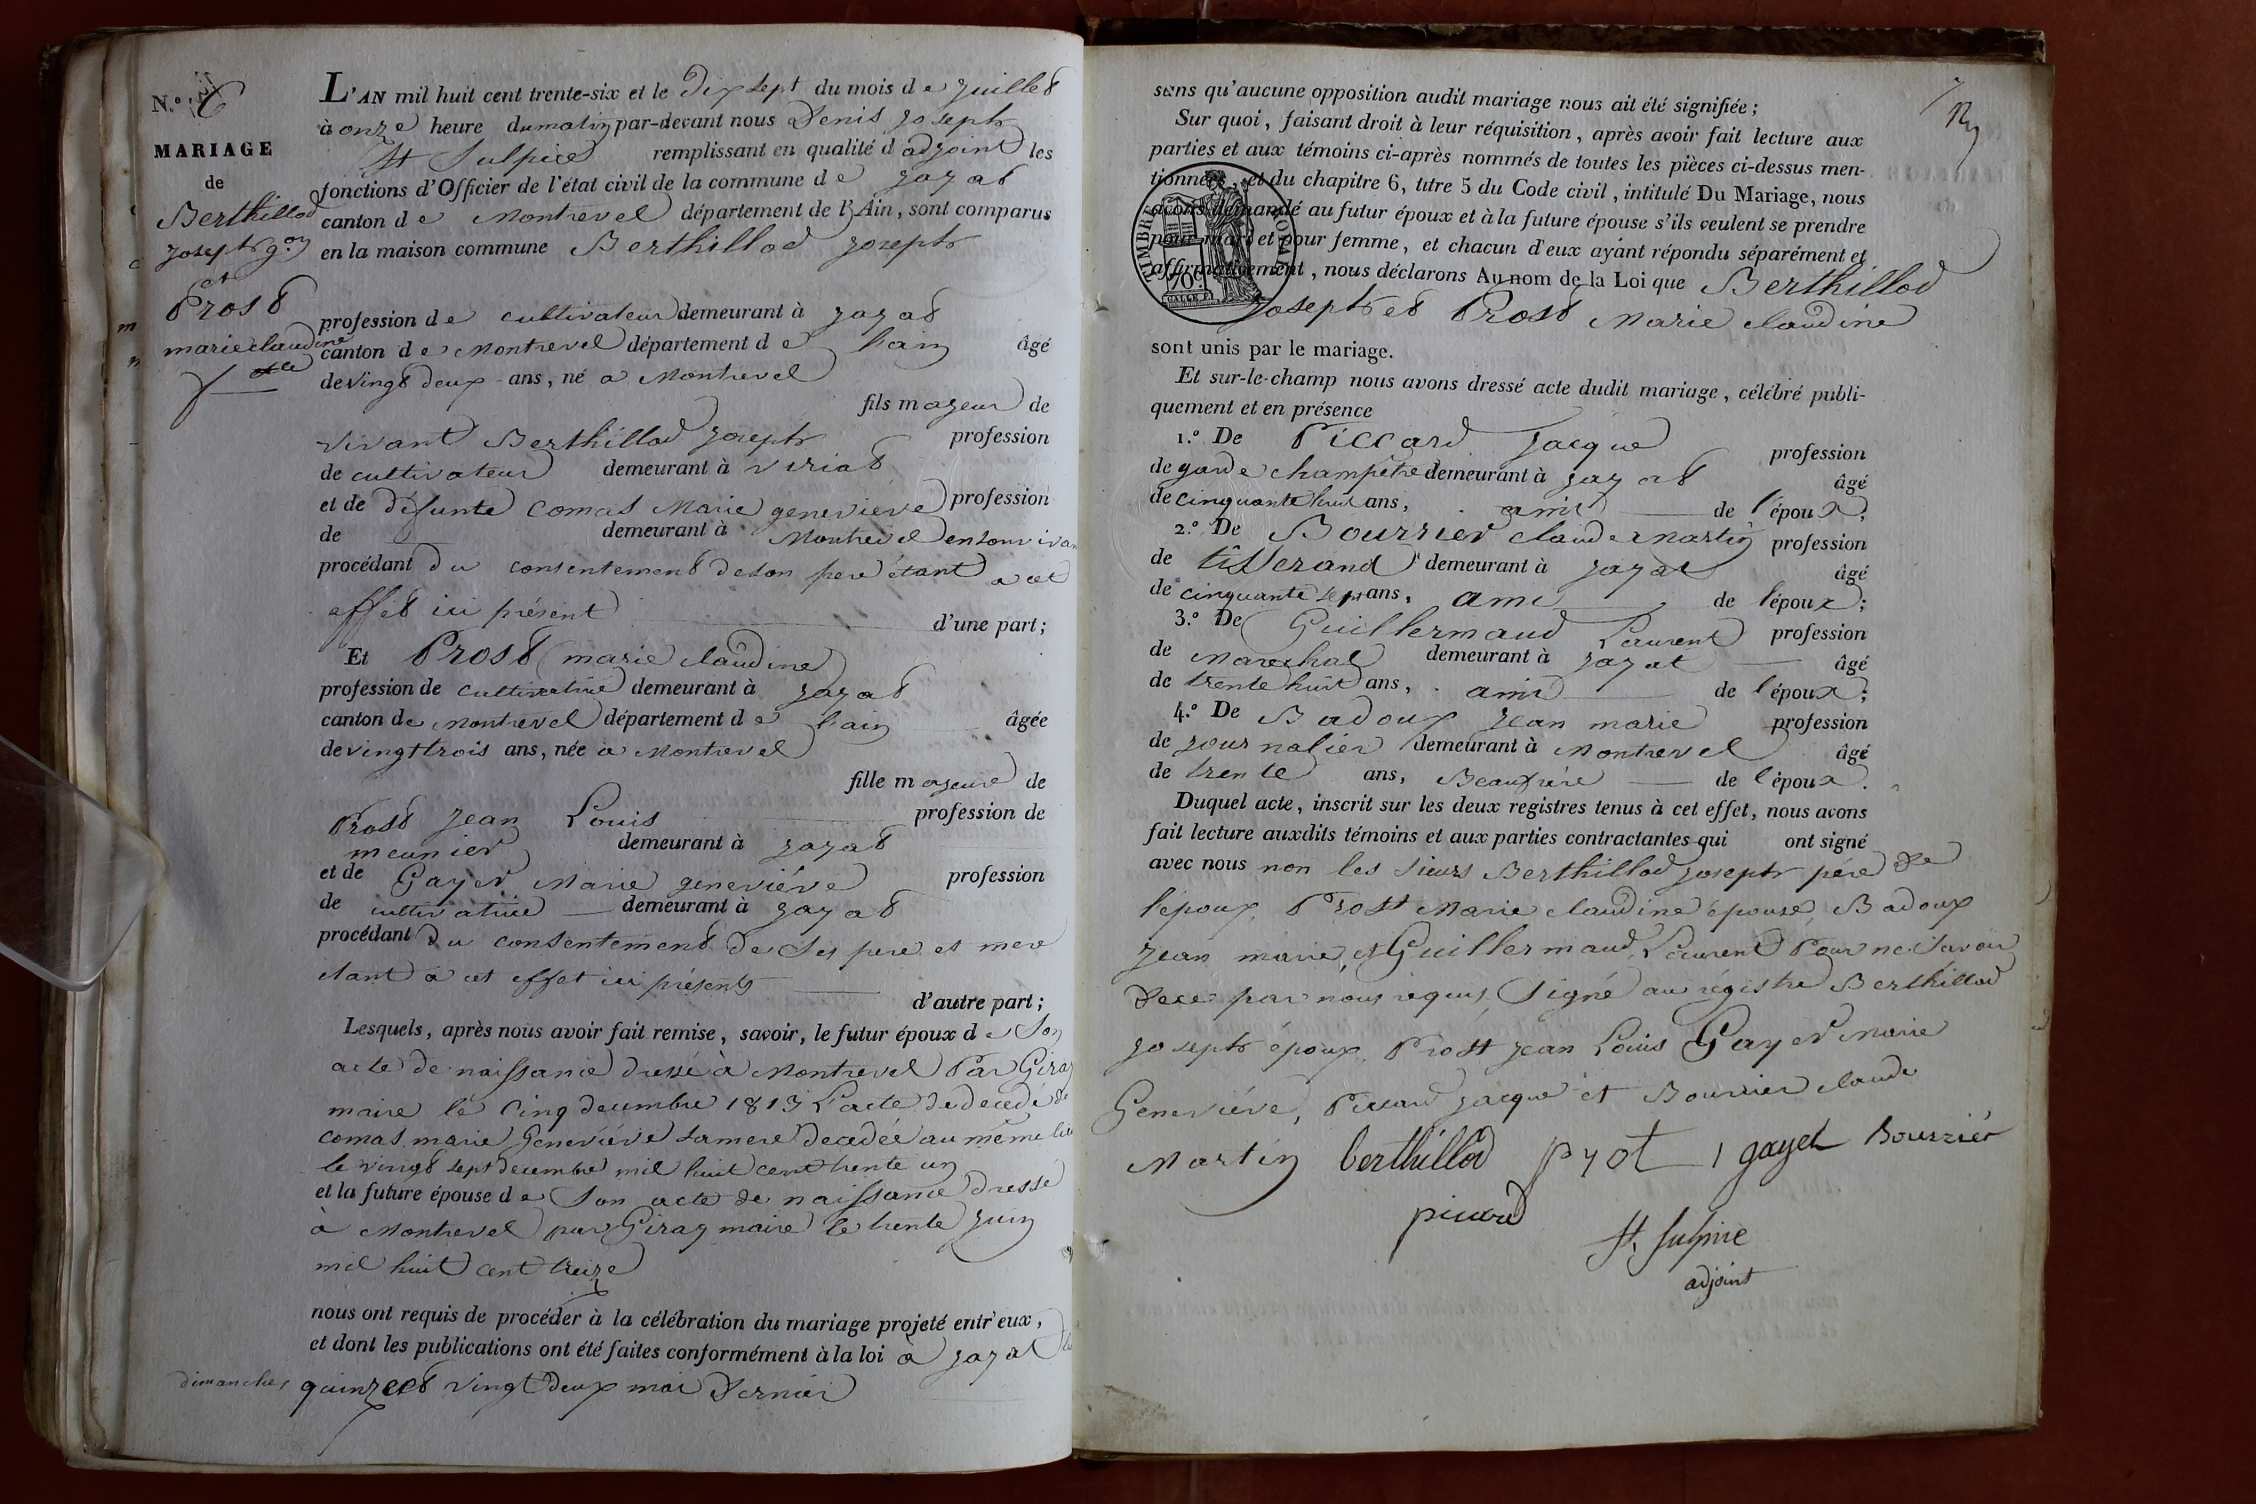 N.º 6
MARIAGE
de
Berthillod
joseph g.on
et
Prost
marie claudine
f lle
L'AN mil huit cent trente-six et le Dix sept du mois de juillet
à onze heure du matin par-devant nous Denis joseph
St Sulpice remplissant en qualité d'adjoint les
fonctions d'Officier de l'état civil de la commune de jayat
canton de Montrevel département de l'Ain, sont comparus
en la maison commune Berthillod joseph
profession de cultivateur demeurant à jayat
canton de Montrevel département de l'ain âgé
de vingt deux ans, né a Montrevel
fils majeur de
vivant Berthillod joseph profession
de cultivateur demeurant à viriat
et de défunte Comas Marie geneviève profession
de demeurant à Montrevel en son vivan
procédant du consentement de son pere étant a cet
effet ici présent d'une part;
Et Prost marie claudine
profession de cultivatrice demeurant à jayat
canton de Montrevel département de l'ain âgée
de vingt trois ans, née a Montrevel
fille majeure de
Prost jean Louis profession de
meunier demeurant à jayat
et de Gayet Marie geneviéve profession
de cultivatrice demeurant à jayat
procédant du consentement de Ses pere et mere
étant à cet effet ici présents
d'autre part;
Lesquels, après nous avoir fait remise, savoir, le futur époux de Son
acte de naissance dressé à Montrevel Par Giray
maire le Cinq decembre 1813 L'acte de decedé de
Comas marie Geneviéve sa mere decedée au même lieu
le vingt sept decembre mil huit cent trente un
et la future épouse de Son acte de naissance dressé
à Montrevel par Giray maire le trente juin
mil huit cent treize
nous ont requis de procéder à la célébration du mariage projeté entr'eux,
et dont les publications ont été faites conformément à la loi à jayat les
dimanches quinze et vingt deux mai dernier
sans qu'aucune opposition audit mariage nous ait été signifiée;
Sur quoi, faisant droit à leur réquisition, après avoir fait lecture aux
parties et aux témoins ci-après nommés de toutes les pièces ci-dessus men-
tionnées, et du chapitre 6, titre 5 du Code civil, intitulé Du Mariage, nous
avons demandé au futur époux et à la future épouse s'ils veulent se prendre
pour mari et pour femme, et chacun d'eux ayant répondu séparément et
affirmativement, nous déclarons Au nom de la Loi que Berthillod
joseph et Prost Marie claudine
TIMBRE ROYAL
70 c
sont unis par le mariage.
Et sur-le-champ nous avons dressé acte dudit mariage, célébré publi-
quement et en présence
1.º De Piccard Jacque profession
de garde champêtre demeurant à jayat âgé
de cinquante huit ans, ami de l'époux;
2.º De Bourrier claude Martin profession
de tisserand demeurant à jayat âgé
de cinquante sept ans, ami de l'époux;
3.º De Guillermaud Laurent profession
de Marechal demeurant à jayat âgé
de trente huit ans, ami de l'époux;
4.º De Badoux jean marie profession
de journalier demeurant à Montrevel âgé
de trente ans, Beaufrère de l'époux.
Duquel acte, inscrit sur les deux registres tenus à cet effet, nous avons
fait lecture auxdits témoins et aux parties contractantes qui ont signé
avec nous non les sieurs Berthillod joseph pére de
l'époux, Prost Marie claudine épouse, Badoux
jean marie, et Guillermaud Laurent Pour ne savoir
de ce par nous requis, Signé au régistre Berthillod
joseph époux, Prost jean Louis Gayet Marie
Geneviéve, Piccard jacque et Bourrier claude
Martin berthillod pyot gayet Bourrier
picard
St Sulpice
adjoint